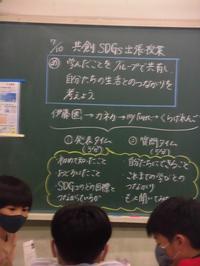 7/10 共創SDGs出張授業
め 学んだことをグループで共有し、
自分たちの生活とのつながりを
考えよう
伊藤園→カネカ→
→くらげれんご
①発表タイム
(5分)
初めて知ったこと
おどろいたこと
SDGsのどの目標と
つながっているか
②質問タイム
自分たちにできること
これまでの学びとの
つながり
もっと聞いてみたい